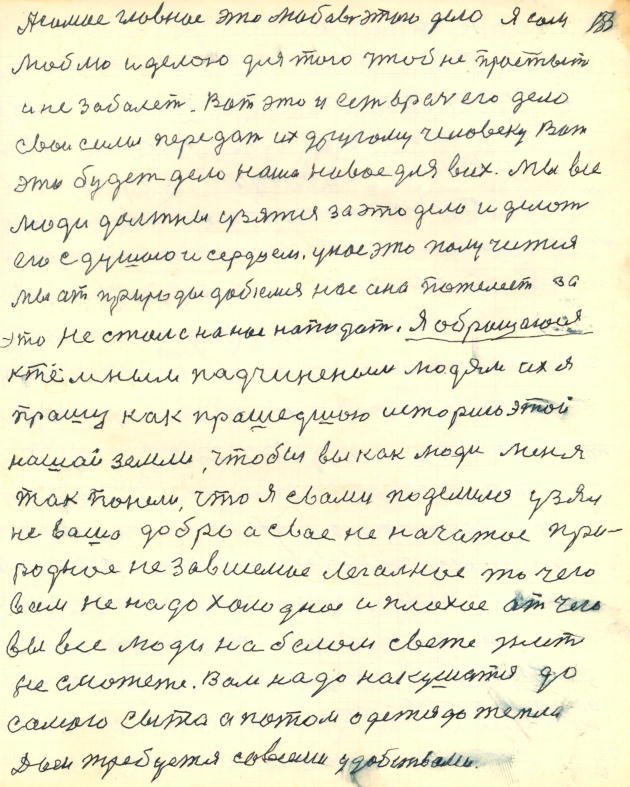 А самое главное это любов этого дело я сам 133
люблю и делою для того чтоб не простыт
и не забалет. Вот это и ест врач его дело
сваи силы передат их другому человеку Вот
это будет дело наша новое для всих. Мы все
люди должны узятся за это дело и делат
его с душою и сердцем. у нас это получится
мы от природы добюмся нас она пожелеет за
это не стане на нас нападат. Я обращаюся
к тёмным падчиненым людям их я
прашу как прашедшою историю этой
нашай земли, чтобы вы как люди меня
так понели, что я свами поделился узял
не ваша добро а свае не начатое при-
родное не завиемое легалное то чего
вам не надо холодное и плохое от чего
вы все люди на белом свете жит
не сможете. Вам надо накушатся до
самого сыта а потом одетя до тепла
Дом требуется совсеми удобствами.